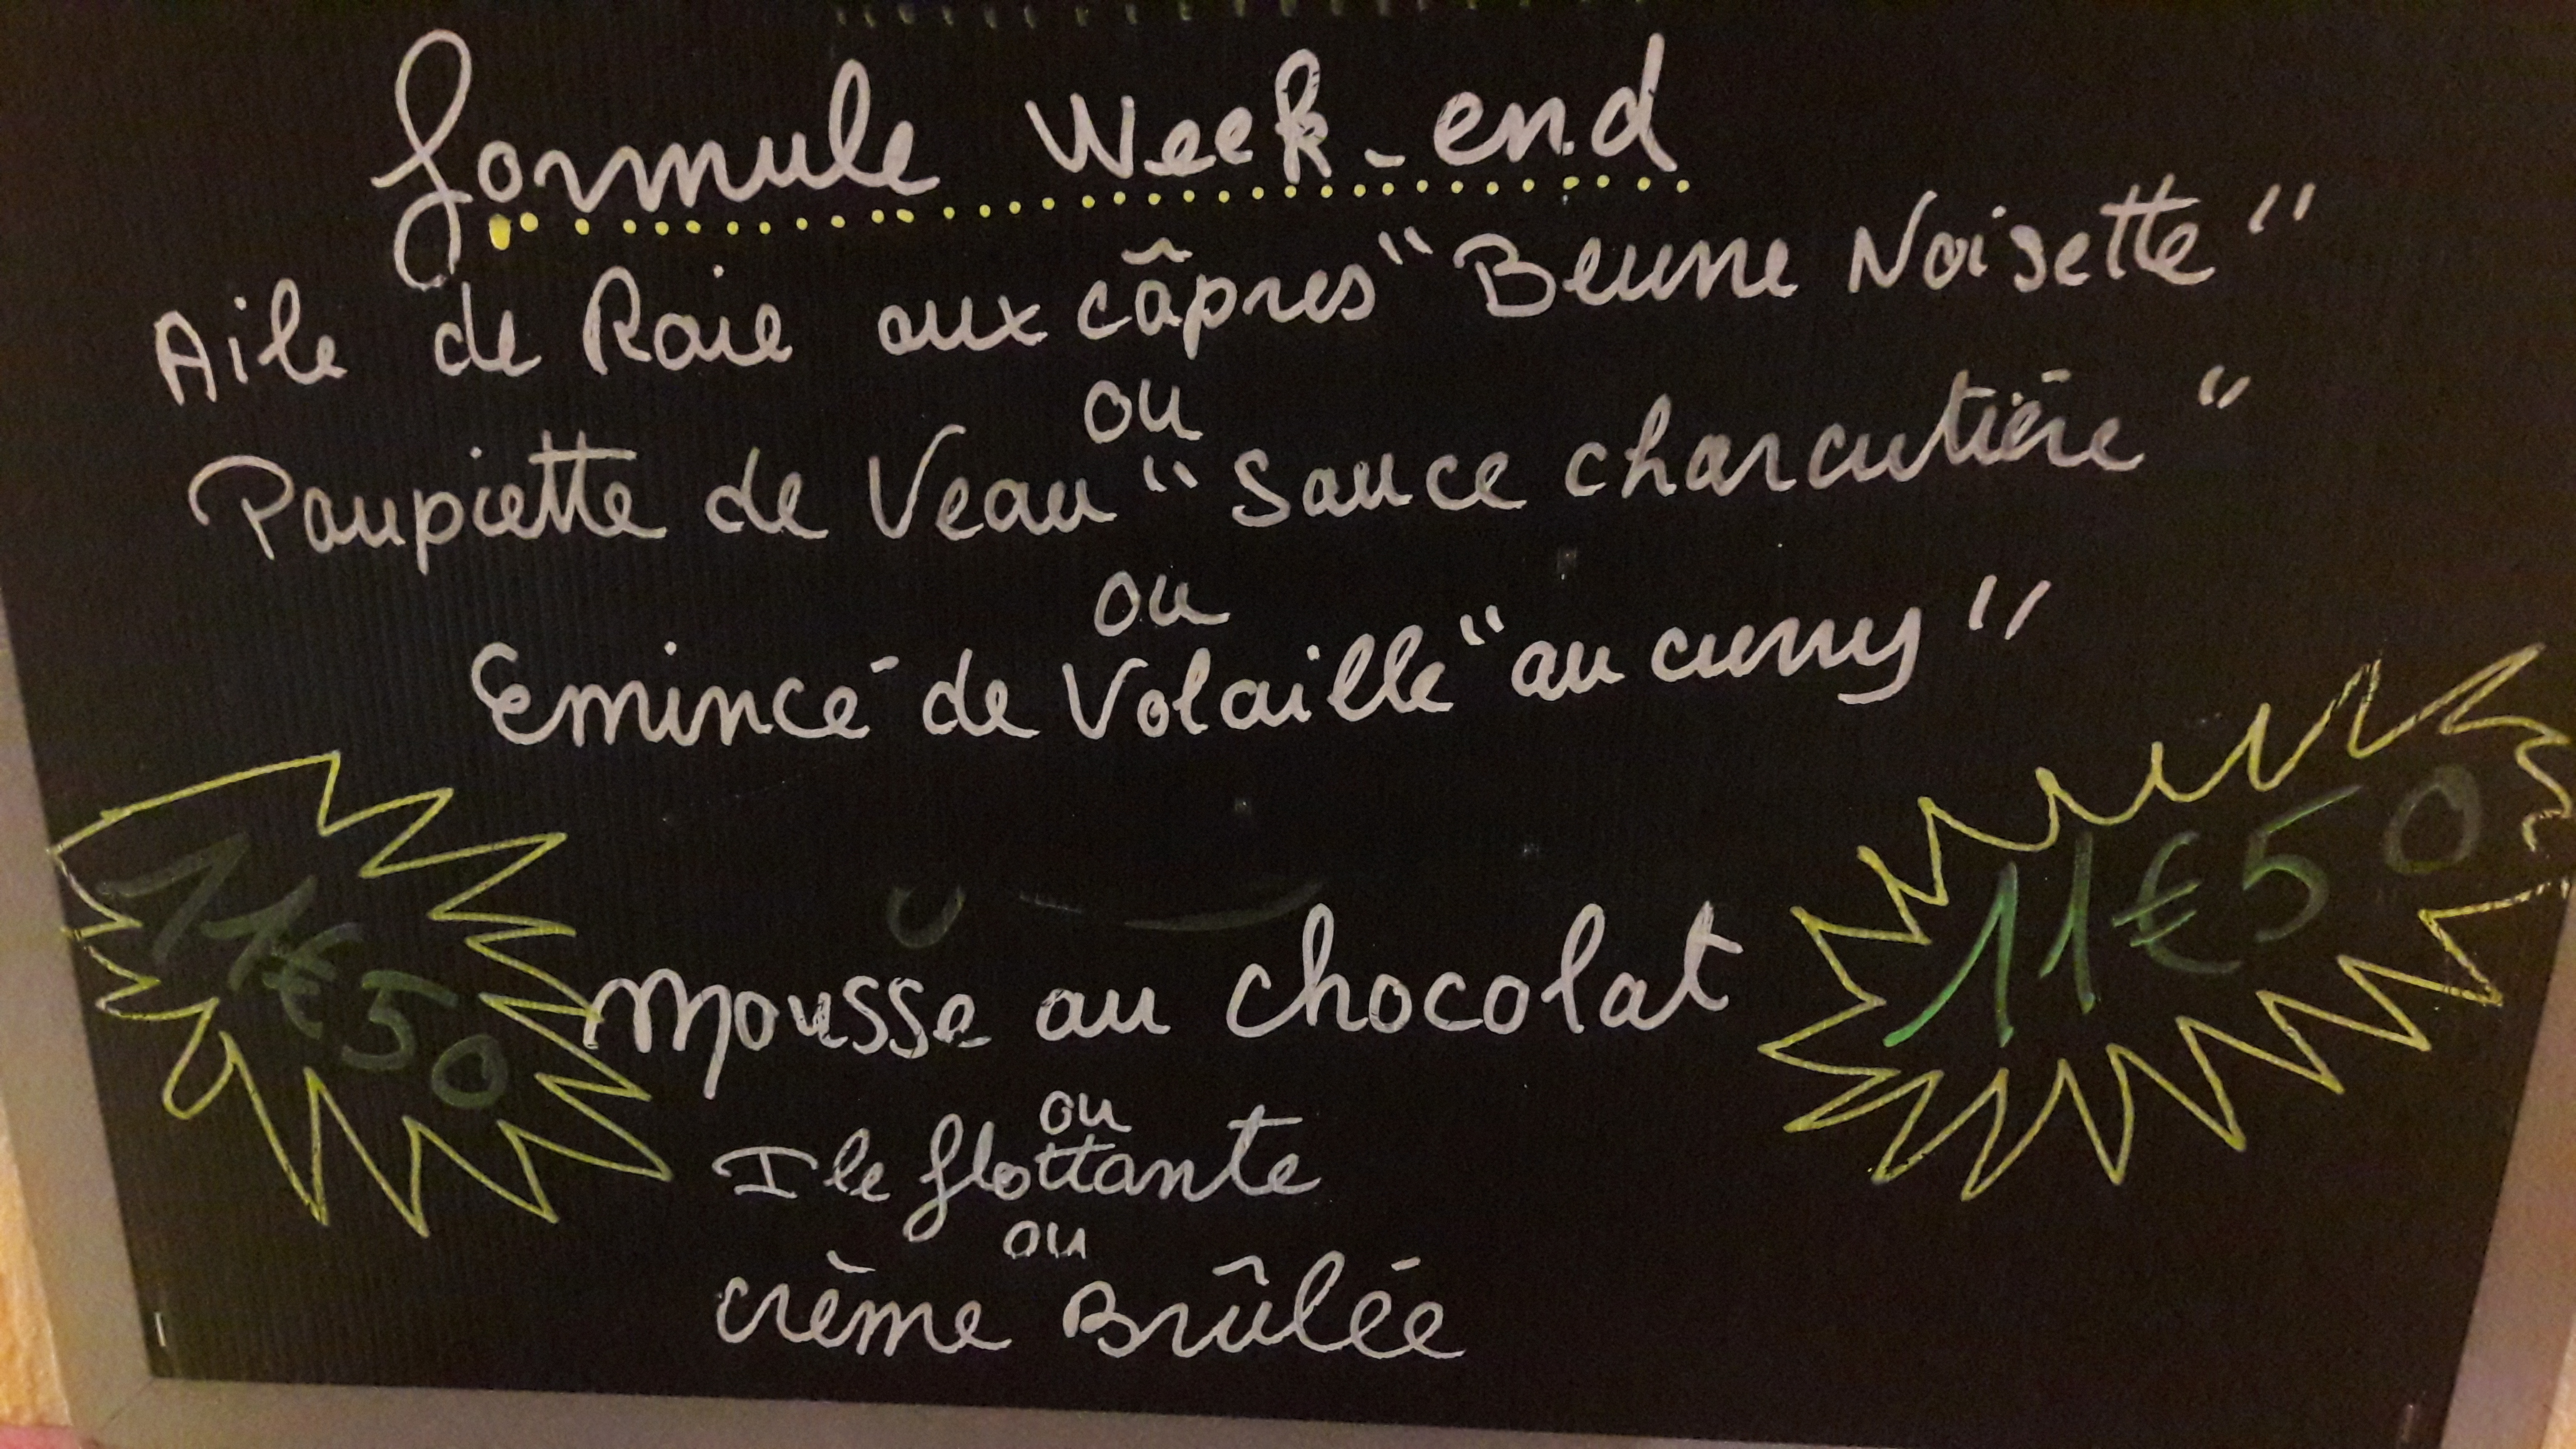 formule Week-end
Aile de Raie aux câpres "Beurre Noisette"
ou
Paupiette de Veau "Sauce charcutière"
ou
Emincé de Volaille "au curry"
11€50
11€50
Mousse au chocolat
ou
Ile flottante
ou
crème Brûlée